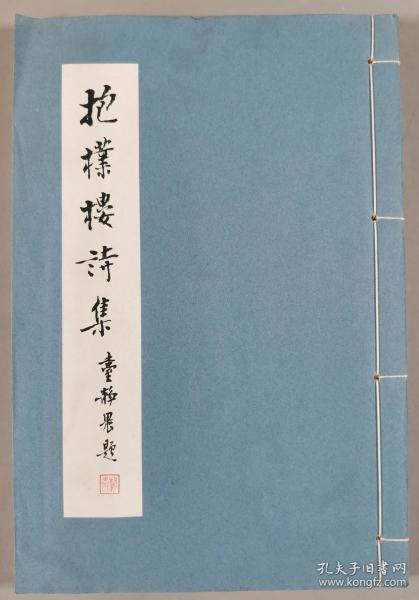 抱樸樓詩集
臺静農題
孔夫子旧书网
www.kongfz.com